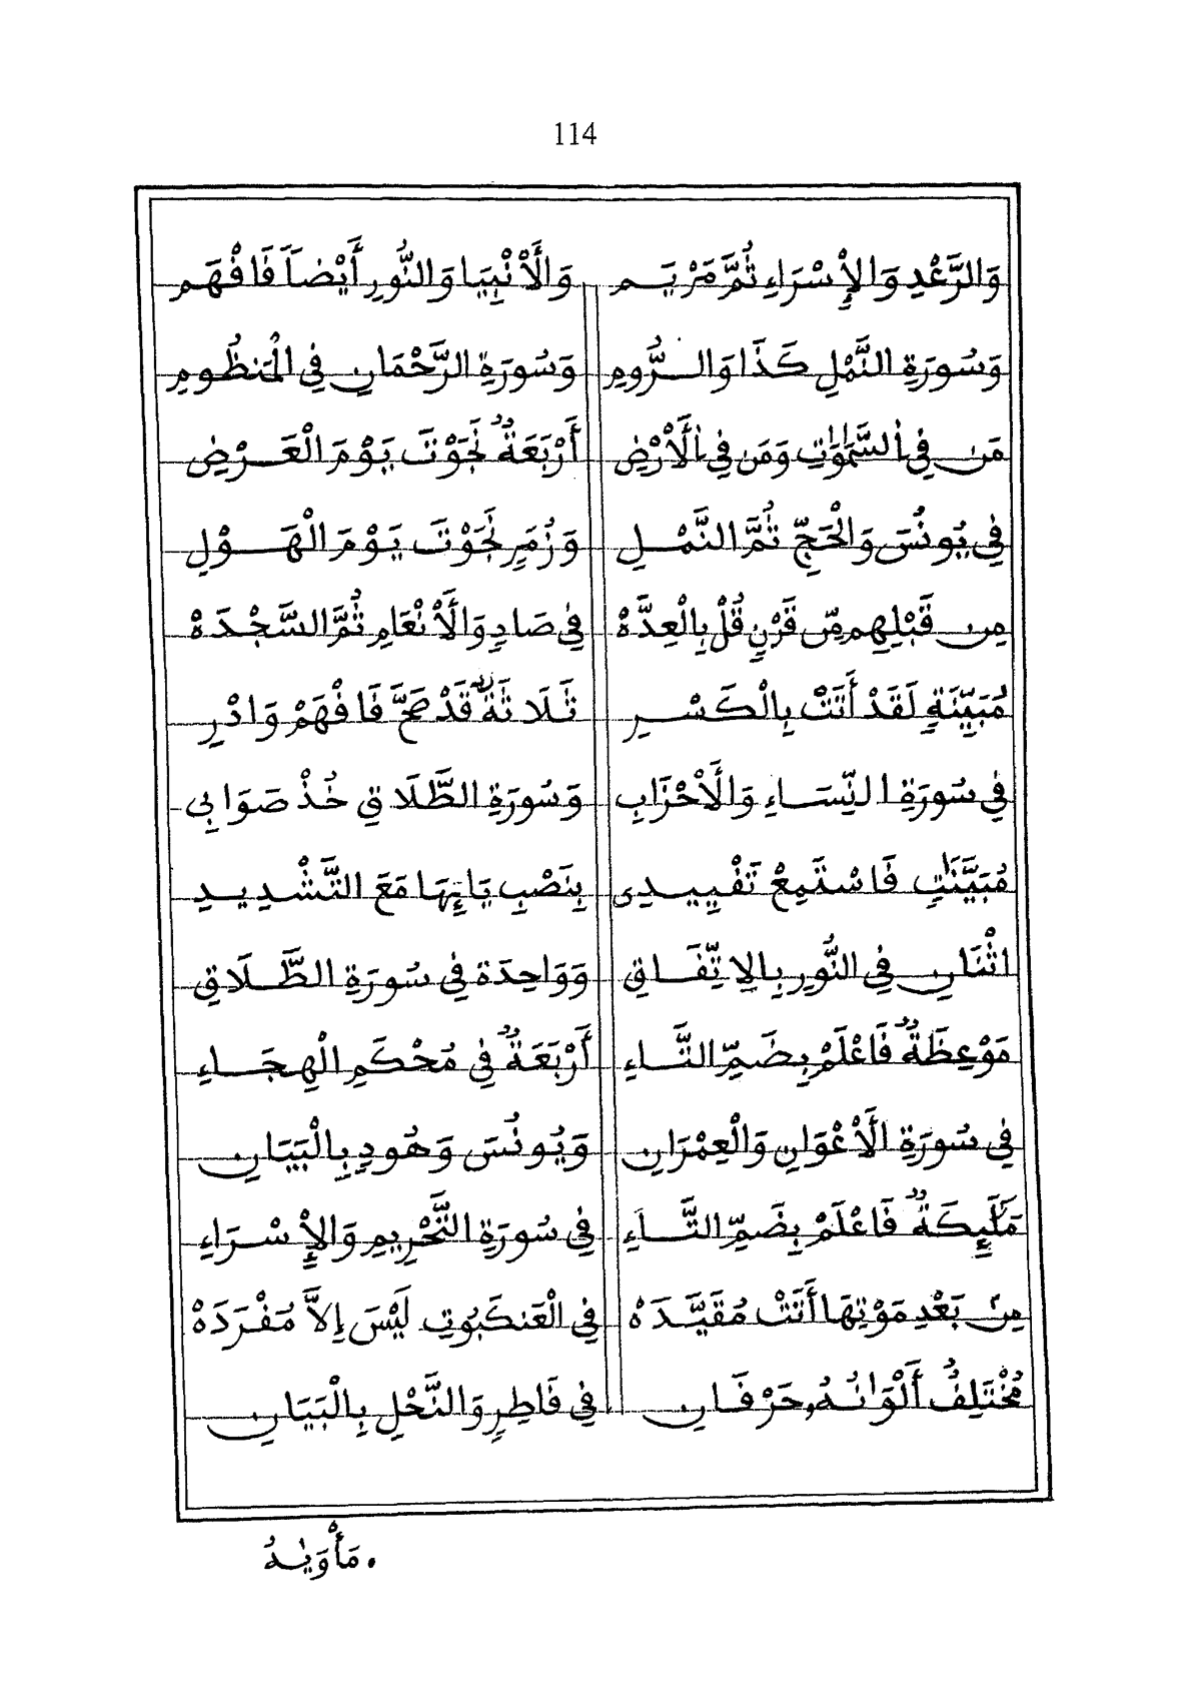 114
وَالرَّعْدِ وَالإِسْرَاءِ ثُمَّ مَرْيَم وَالأَنْبِيَا وَالنُّورِ أَيْضاً فَافْهَم
وَسُورَةِ النَّمْلِ كَذَا وَالرُّومِ وَسُورَةِ الرَّحْمَانِ فِي الْمَنظُومِ
مَن فِي السَّمَٰوَٰتِ وَمَن فِي الْأَرْضِ أَرْبَعَةٌ نَجَوْتَ يَوْمَ الْعَرْضِ
فِي يُونُسَ وَالْحَجِّ ثُمَّ النَّمْلِ وَزُمَرٍ نَجَوْتَ يَوْمَ الْهَوْلِ
مِن قَبْلِهِم مِّن قَرْنٍ قُلْ بِالْعِدَّهْ فِي صَادٍ وَالَأنْعَامِ ثُمَّ السَّجْدَهْ
مُبَيِّنَةٍ لَقَدْ أَتَتْ بِالْكَسْرِ ثَلَاثَةٌ قَدْ صَحَّ فَافْهَمْ وَادْرِ
فِي سُورَةِ النِّسَاءِ وَالَأحْزَابِ وَسُورَةِ الطَّلَاقِ خُذْ صَوَابِي
مُبَيَّنَٰتٍ فَاسْتَمِعْ تَقْيِيدِى بِنَصْبِ يَائِهَا مَعَ التَّشْدِيدِ
اثْنَانِ فِي النُّورِ بِالِاتِّفَاقِ وَوَاحِدَة فِي سُورَةِ الطَّلَاقِ
مَوْعِظَةٌ فَاعْلَمْ بِضَمِّ التَّاءِ أَرْبَعَةٌ فِي مُحْكَمِ الْهِجَاءِ
فِي سُورَةِ الَأعْوَانِ وَالْعِمْرَانِ وَيُونُسَ وَهُودٍ بِالْبَيَانِ
مَلَٰٓئِكَةٌ فَاعْلَمْ بِضَمِّ التَّاءِ فِي سُورَةِ التَّحْرِيمِ وَالإِسْرَاءِ
مِنۢ بَعْدِ مَوْتِهَا أَتَتْ مُقَيَّدَهْ فِي الْعَنكَبُوتِ لَيْسَ إِلاَّ مُفْرَدَهْ
مُخْتَلِفٌ أَلْوَانُهُۥ حَرْفَانِ فِي فَاطِرٍ وَالنَّحْلِ بِالْبَيَانِ
. مَأْوَيٰهُ